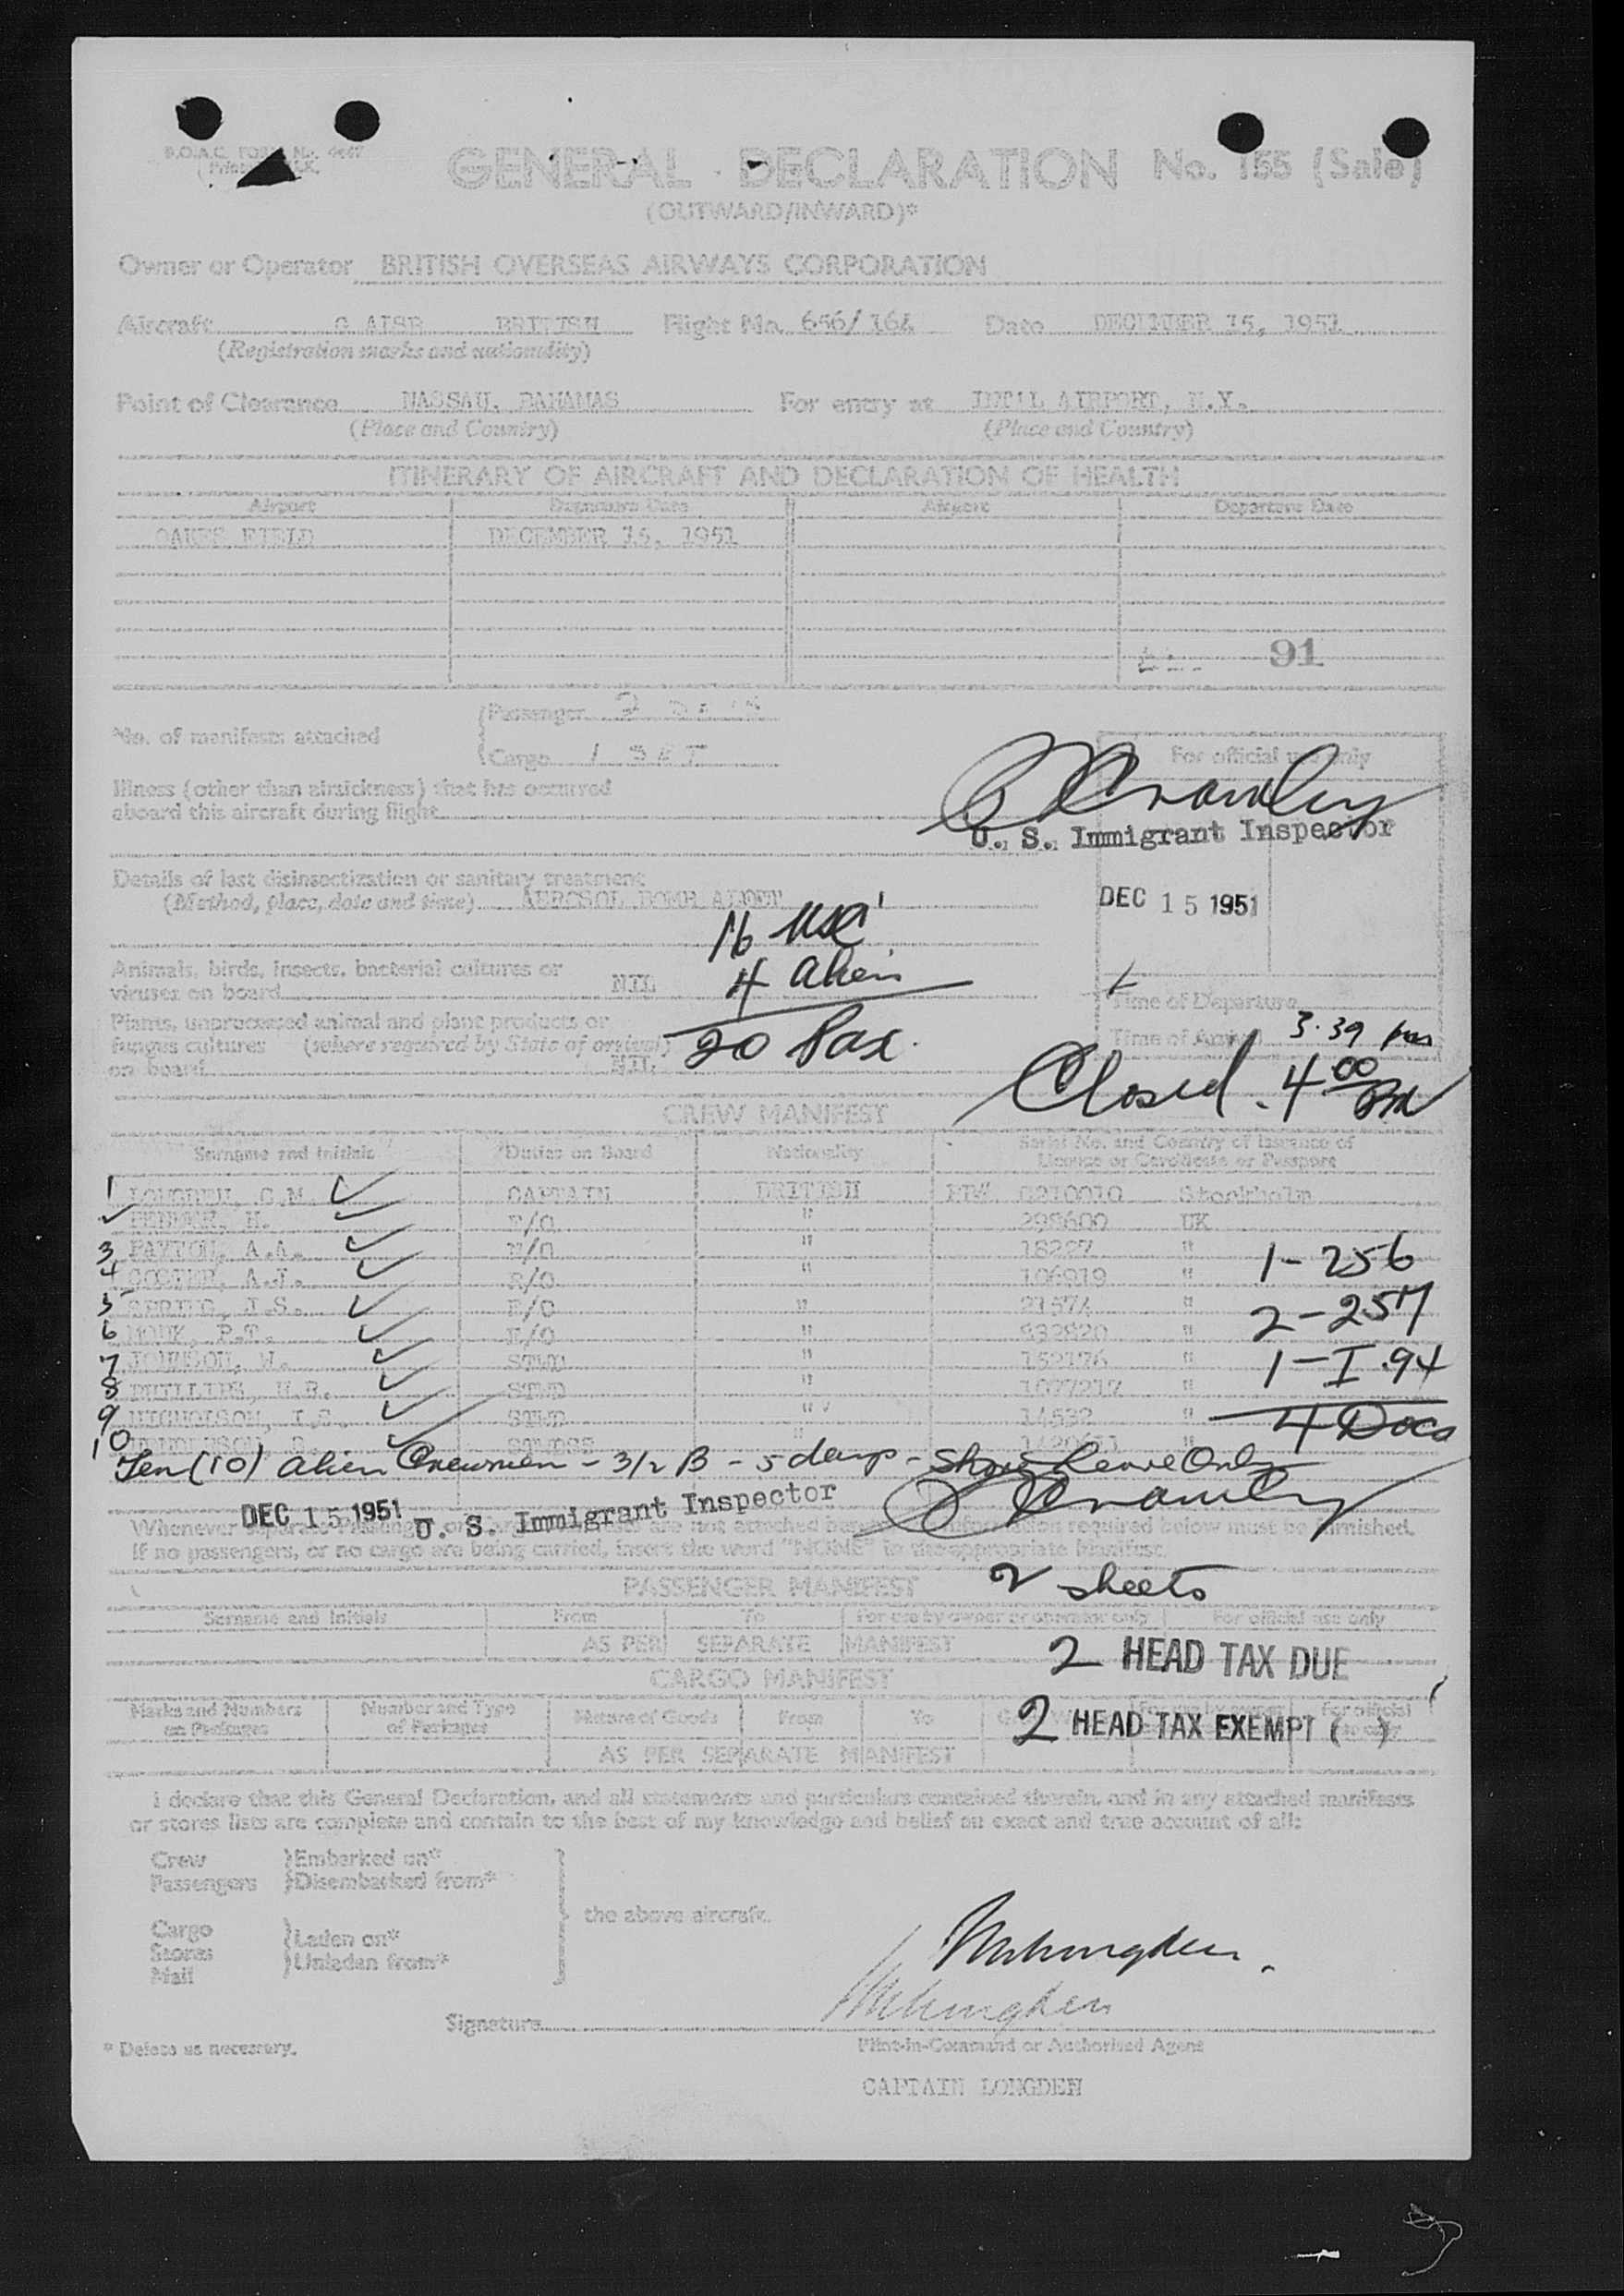 B.O.A.C. FORM No.
GENERAL DECLARATION No. 155 (Sale)
(OUTWARD/INWARD)*
Owner or Operator BRITISH OVERSEAS AIRWAYS CORPORATION
Aircraft BRITISH Flight No. 656/164 Date DECEMBER 15, 1951
(Registration marks and nationality)
Point of Clearance NASSAU, BAHAMAS For entry at INT'L AIRPORT, N.Y.
(Place and Country) (Place and Country)
ITINERARY OF AIRCRAFT AND DECLARATION OF HEALTH
Airport Departure Date Airport Departure Date
OAKES FIELD DECEMBER 15, 1951
91
No. of manifests attached
Passenger 2
Cargo 1 SET
For official use only
Illness (other than airsickness) that has occurred
aboard this aircraft during flight
U. S. Immigrant Inspector
Details of last disinsectization or sanitary treatment
(Method, place, date and time) AEROSOL BOMB
DEC 15 1951
16 USC
Animals, birds, insects, bacterial cultures or
viruses on board NIL
4 alien
Time of Departure
Plants, unprocessed animal and plant products or
fungus cultures (where required by State of arrival)
on board NIL
20 Pax.
Time of Arrival 3.39 pm
Closed. 4 00 PM
CREW MANIFEST
Surname and Initials *Duties on Board Nationality Serial No. and Country of Issuance of
Licence or Certificate or Passport
1 LONGDEN, C.M. CAPTAIN BRITISH Stockholm
H. F/O " 298600 UK
3 PAYTON, A.A. " 18227 "
4 A.J. " 106919 "
5 SPRING, J.S. " "
6 MONK, P.T. " 932820 "
7 JOHNSON, W. STWD " "
8 PHILLIPS, H.R. STWD " "
9 NICHOLSON, STWD " 14532 "
10 STWDSS " "
1 - 256
2 - 257
1 - I.94
4 Docs
Ten (10) alien Crewmen - 3/2 B - 5 days - Shore Leave Only
DEC 15 1951 U. S. Immigrant Inspector
Whenever are not attached information required below must be furnished.
If no passengers, or no cargo are being carried, insert the word "NONE" in the appropriate Manifest.
2 sheets
PASSENGER MANIFEST
Surname and Initials From To For use by owner or operator only For official use only
AS PER SEPARATE MANIFEST
2 HEAD TAX DUE
CARGO MANIFEST
Marks and Numbers on Packages Number and Type of Packages Nature of Goods From To For official
2 HEAD TAX EXEMPT ( )
AS PER SEPARATE MANIFEST
I declare that this General Declaration, and all statements and particulars contained therein, and in any attached manifests
or stores lists are complete and contain to the best of my knowledge and belief an exact and true account of all:
Crew Embarked on*
Passengers Disembarked from*
the above aircraft.
Cargo
Stores
Mail
Laden on*
Unladen from*
Signature
* Delete as necessary.
Pilot-in-Command or Authorised Agent
CAPTAIN LONGDEN